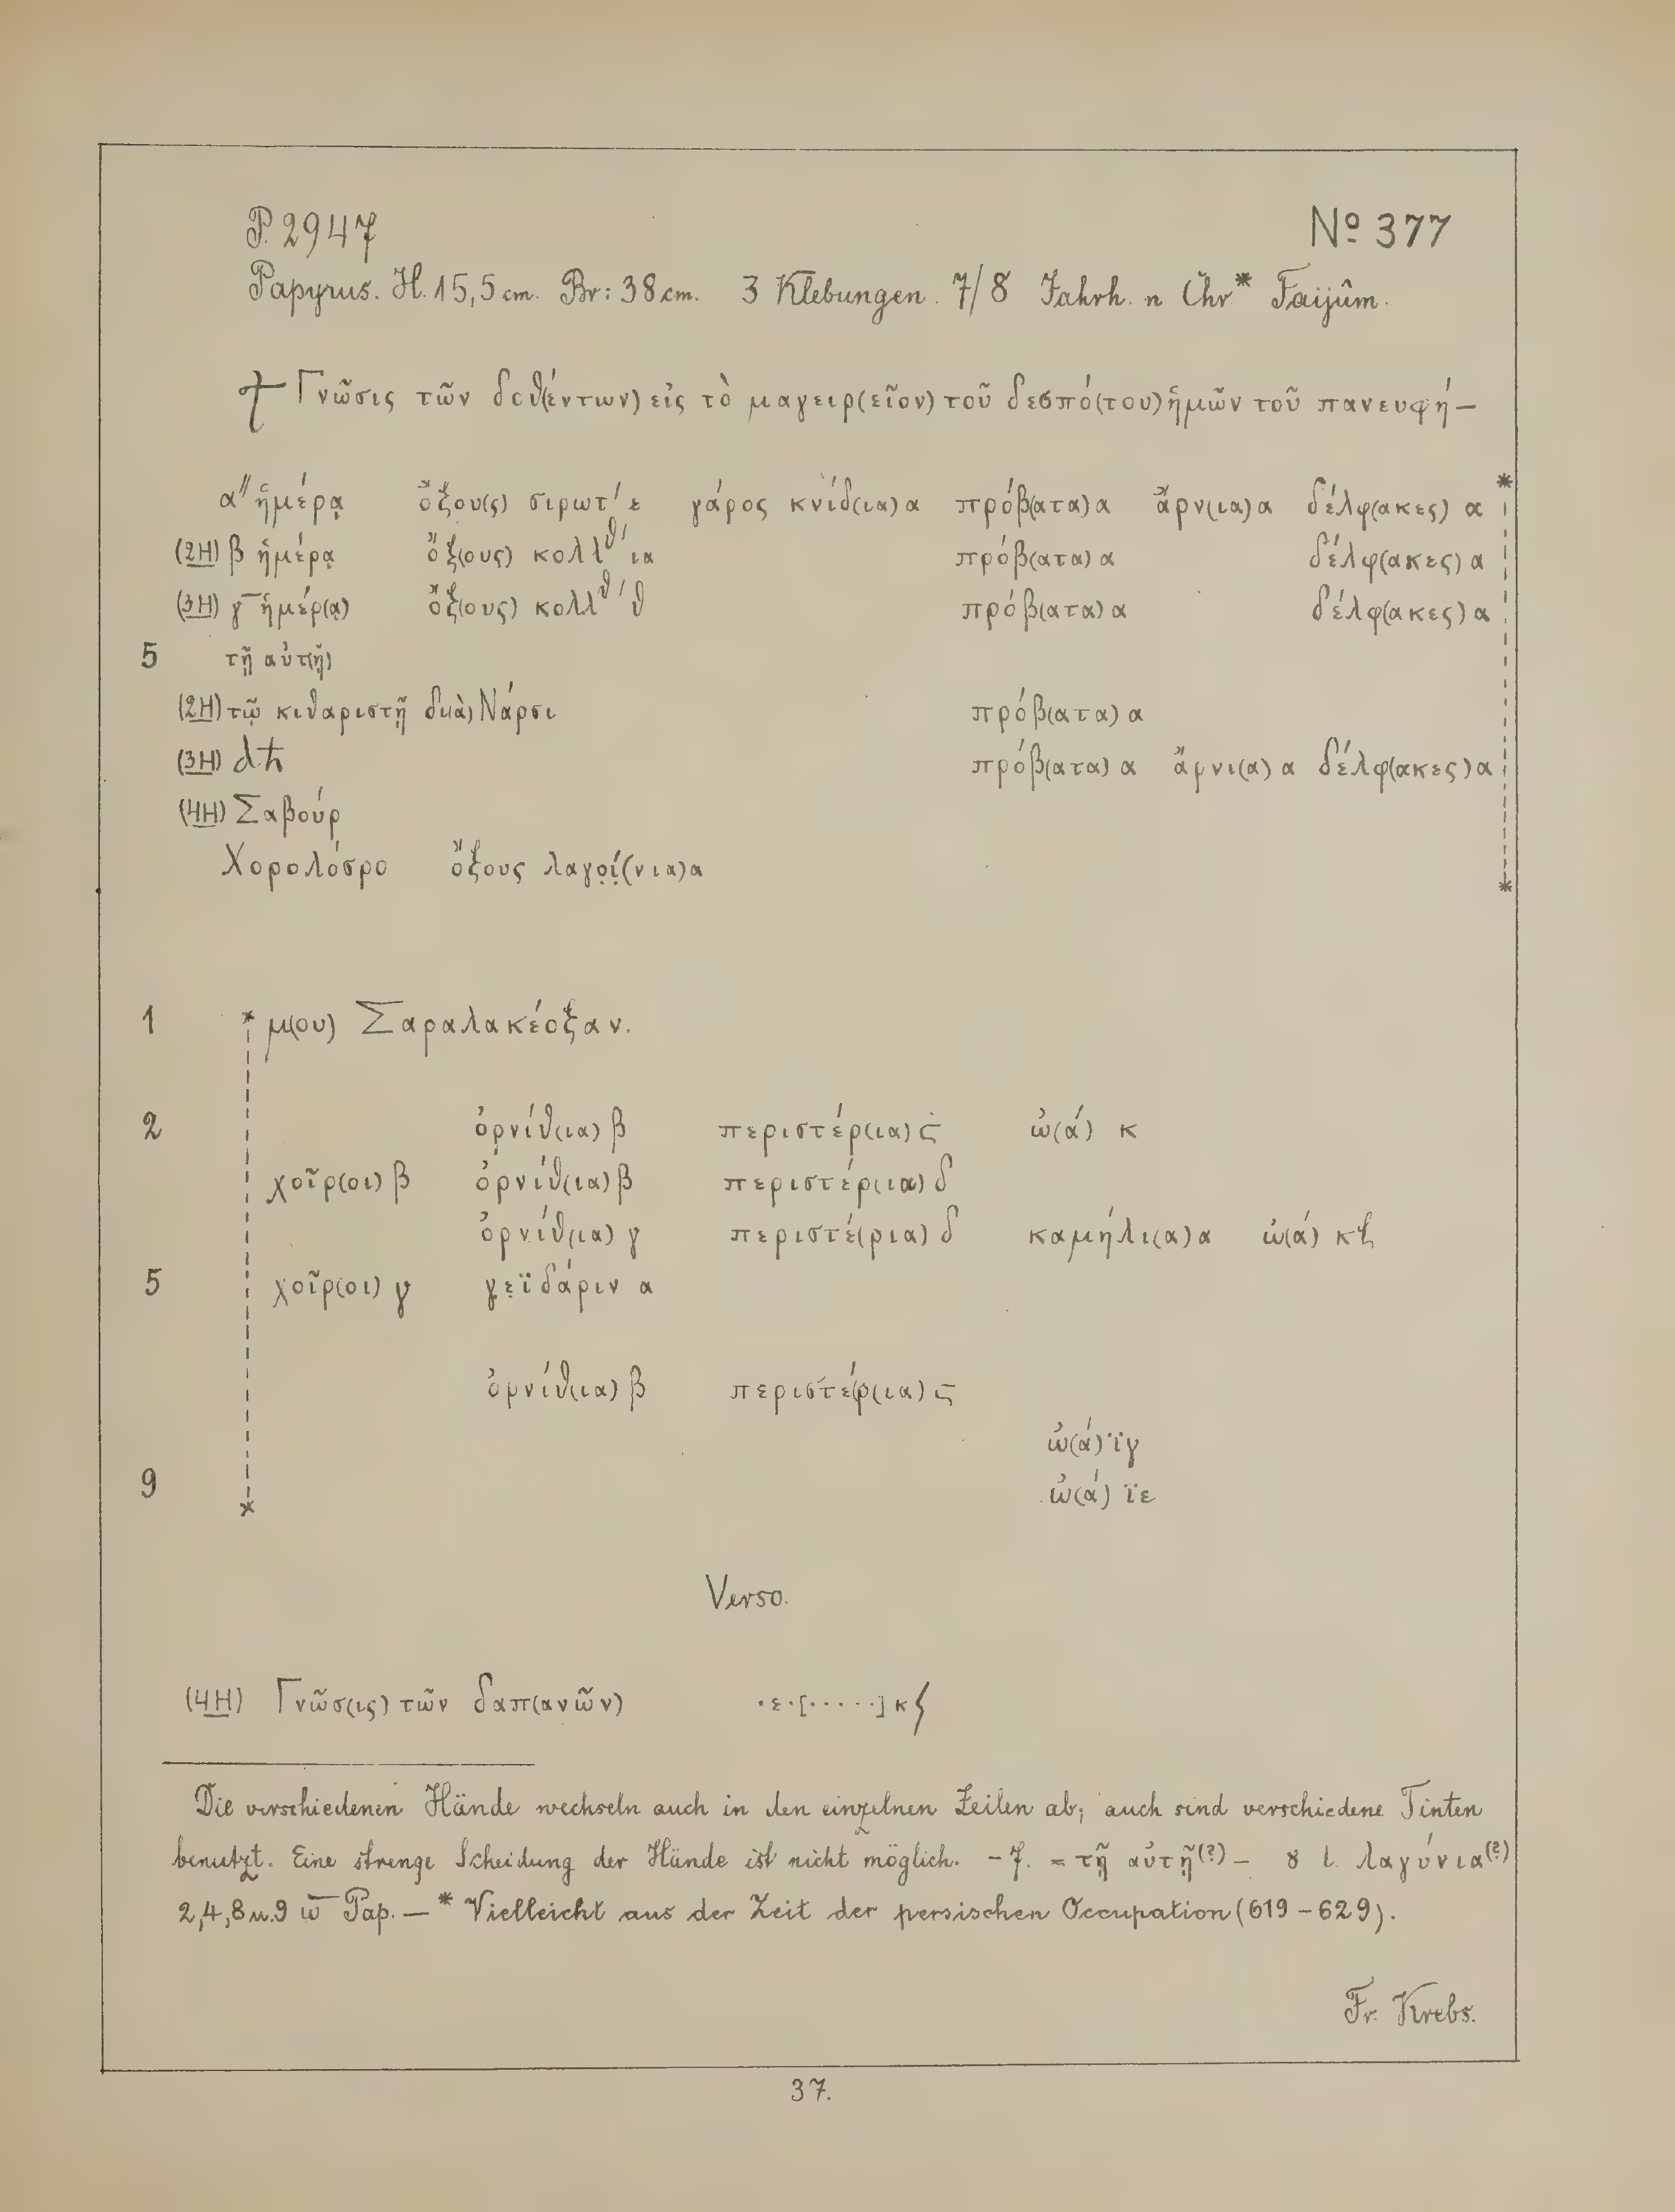 P. 2947 No 377
Papyrus. H. 15,5 cm. Br: 38 cm. 3 Klebungen. 7/8 Jahrh. n Chr.* Faijûm.
Γνῶσις τῶν δοθ(έντων) εἰς τὸ μαγειρ(εῖον) τοῦ δεσπό(του) ἡμῶν τοῦ πανευφή—
α" ἡμέρᾳ ὄξου(ς) σιρωτ' ε γάρος κνίδ(ια) α πρόβ(ατα) α ἄρν(ια) α δέλφ(ακες) α *
(2H) β ἡμέρᾳ ὄξ(ους) κολλθ' ια πρόβ(ατα) α δέλφ(ακες) α
(3H) γ‾ ἡμέρ(ᾳ) ὄξ(ους) κολλθ' θ πρόβ(ατα) α δέλφ(ακες) α
5 τῇ αὐτ(ῇ)
(2H) τῷ κιθαριστῇ δι(ὰ) Νάρσι πρόβ(ατα) α
(3H) πρόβ(ατα) α ἄρνι(α) α δέλφ(ακες) α
(4H) Σαβούρ
Χορολόσρο ὄξους λαγο̣ί̣(νια) α *
1 * μ(ου) Σαραλακέοξαν.
2 ὀρνίθ(ια) β περιστέρ(ια) ϛ ὠ(ά) κ
χοῖρ(οι) β ὀρνίθ(ια) β περιστέρ(ια) δ
ὀρνίθ(ια) γ περιστέ(ρια) δ καμήλι(α) α ὠ(ά)
5 χοῖρ(οι) γ γε̣ϊδάριν α
ὀρνίθ(ια) β περιστέρ(ια) ϛ
ὠ(ά) ϊγ
9 * ὠ(ά) ϊε
Verso.
(4H) Γνῶσ(ις) τῶν δαπ(ανῶν) ·ε·[·····]κ
Die verschiedenen Hände wechseln auch in den einzelnen Zeilen ab; auch sind verschiedene Tinten
benutzt. Eine strenge Scheidung der Hände ist nicht möglich. – 7. = τῇ αὐτῇ(?) – 8 l. λαγύνια(?)
2,4,8 u. 9 ω‾ Pap. — * Vielleicht aus der Zeit der persischen Occupation (619–629).
Fr. Krebs.
37.